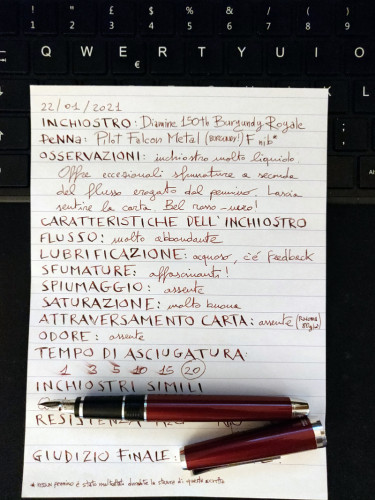 ! " £ $ % & / ( )
1 2 3 4 5 6 7 8 9
Q W E R T Y U I O
€
22/01/2021
INCHIOSTRO: Diamine 150th Burgundy Royale
PENNA: Pilot Falcon Metal F nib*
OSSERVAZIONI: inchiostro molto liquido.
Offre eccezionali sfumature a seconda
del flusso erogato dal pennino. Lascia
sentire la carta Bel rosso-nero!
CARATTERISTICHE DELL'INCHIOSTRO
FLUSSO: molto abbondante
LUBRIFICAZIONE: acquoso, c'è feedback
SFUMATURE: affascinanti!
SPIUMAGGIO: assente
SATURAZIONE: molto buona
ATTRAVERSAMENTO CARTA: assente
ODORE: assente
TEMPO DI ASCIUGATURA:
1 3 5 10 15 20
INCHIOSTRI SIMILI
RESISTENZA H2O
GIUDIZIO FINALE:
* nessun pennino è stato maltrattato durante la stesura di queste